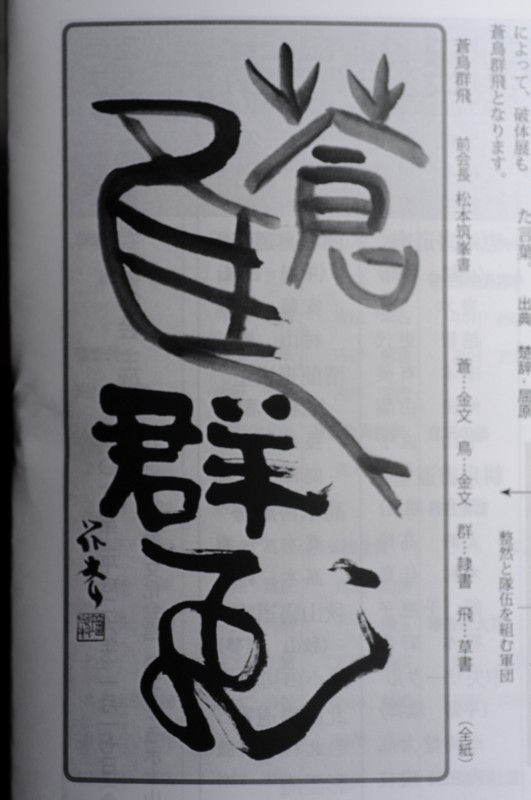 によって、破体展も
た言葉。 出典 楚辞・屈原
蒼鳥群飛となります。
蒼鳥群飛 前会長 松本筑峯書 蒼…金文 鳥…金文 群…隷書 飛…草書 (全紙)
整然と隊伍を組む軍団
蒼鳥群飛
筑峯